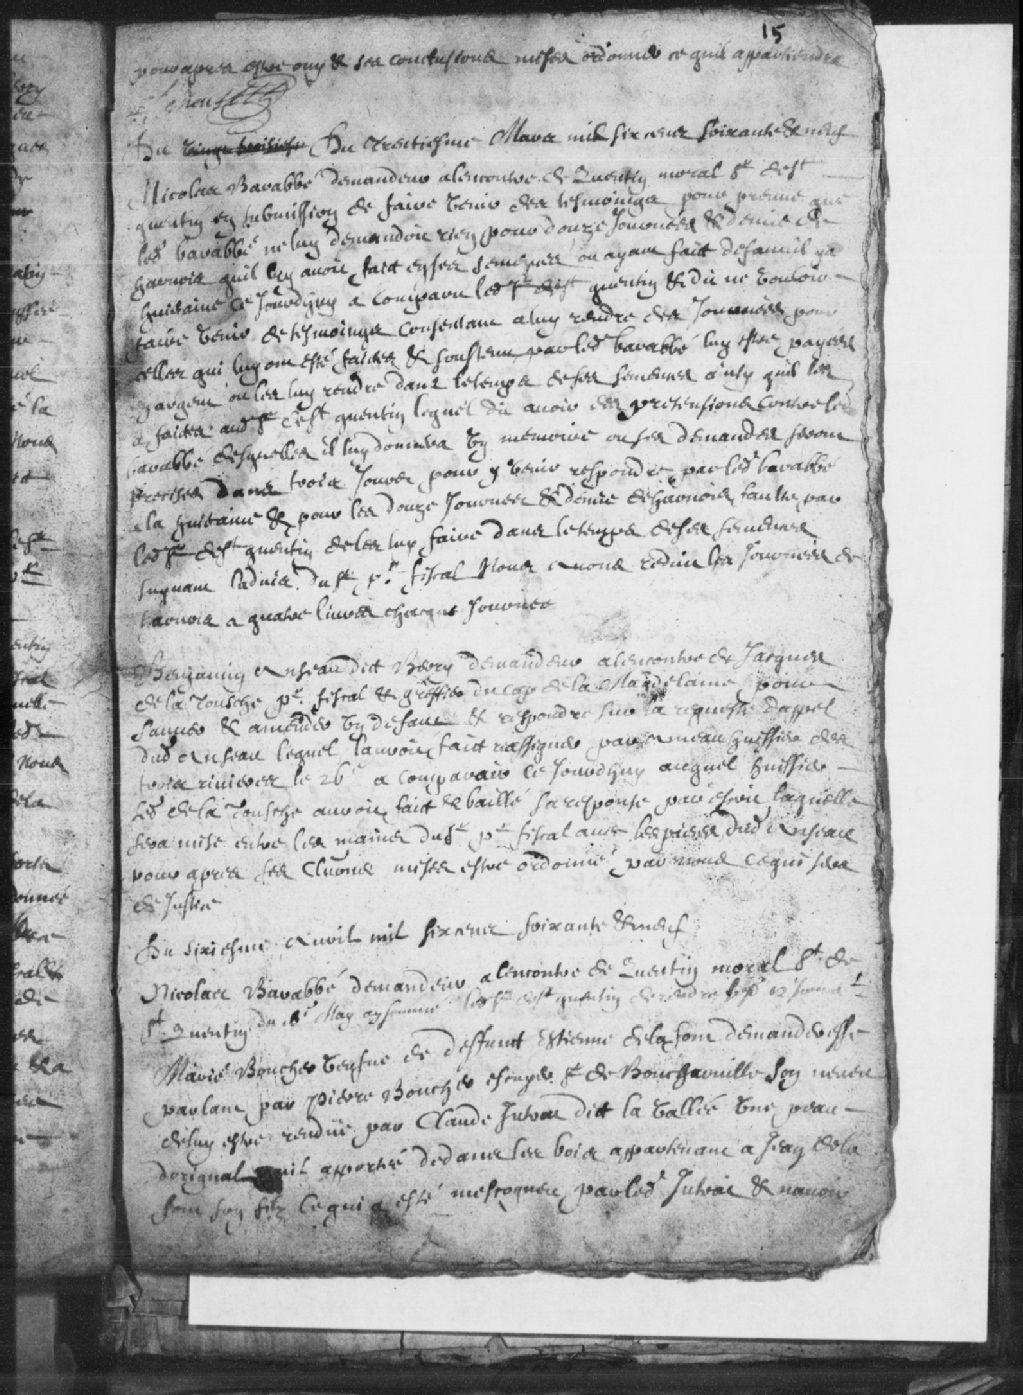 15
pour apres estre ouy & ses conclusions mises ordonner ce quil appartiendra
Du vingt troisiesme Du trentiesme Mars mil six cent soixante & neuf
Nicolas Barabbé demandeur alencontre de Quentin moral Sr de St
quentin en submission de faire venir des tesmoings pour preuve que
led barabbé ne luy demandoit rien pour douze Journées & demie de
harnois quil luy avoit faict en ses semences ou ayant faict deffault ya
huictaine ce Jourdhuy a comparu led Sr de St quentin & dit ne vouloir
faire venir de tesmoings consentant a luy rendre des Journées pour
celles qui luy ont esté faictes & soustenu par led barabbé luy estre payées
en argent ou les luy rendre dans le temps de ses semences ainsy quil les
a faictes aud Sr de St quentin lequel dit avoir des pretensions contre led
barabbé desquelles il luy donnera un memoire ou ses demandes seront
precises dans trois Jours pour y venir respondre par led barabbé
a la huictaine & pour les douze Journées & demie de harnois faulte par
led Sr de St quentin de les luy faire dans le temps de ses semences
suyvant ladvis du Sr pr fiscal Nous avons reduit les Journées de
harnois a quatre livres chaque Journée
Benjamin Anseau dict Berry demandeur alencontre de Jacques
de la Tousche pr fiscal & greffier du cap de la Magdelaine pour
sauver & amender un defaut & respondre sur la requeste dappel
dud Anseau lequel lauroit faict reassigner par Ameau huissier des
trois rivieres le 26e a comparoir ce Jourdhuy auquel huissier
led de la Tousche auroit faict & baillé sa response par escrit laquelle
sera mise entre les mains du Sr pr fiscal avec les pieces dud Anseau
pour apres ses Clusions mises estre ordonné par nous ce qui sera
de Justice
Du sixiesme Avril mil six cent soixante & neuf
Nicolas Barabbé demandeur alencontre de Quentin moral Sr de
St Quentin du 8e May ay sommé led Sr de St quentin de rendre 12 Journ
Marie Boucher veufve de deffunt Estienne de la font demanderesse
parlant par pierre Boucher escuyer Sr de Boucherville son neveu
de luy estre rendue par Claude Jutrat dict la Vallée une peau
dorignal quil apporté dedans les bois appartenant a Jean de la
font son filz ce qui a esté mescognu par led Jutrat & navoir